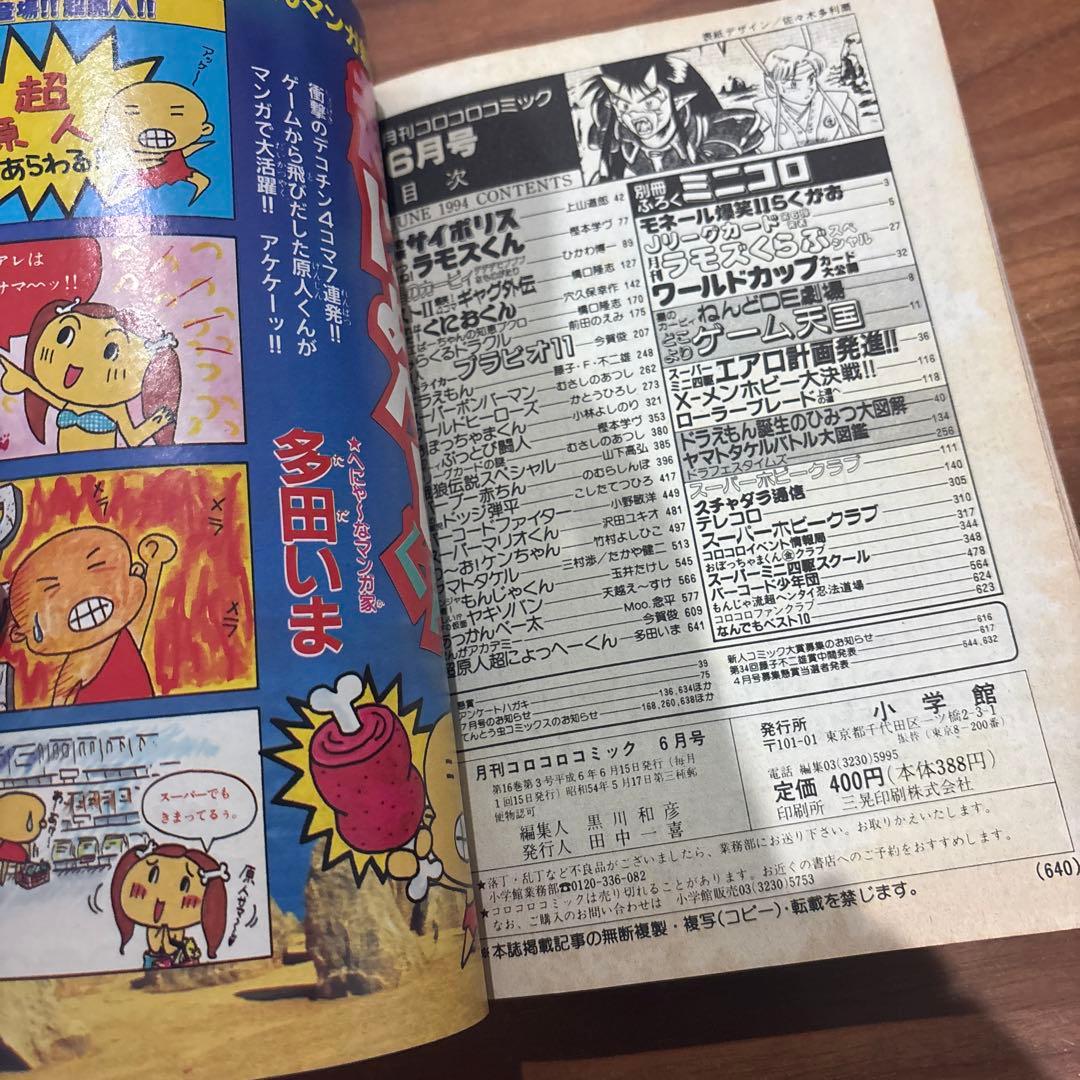 登場!! 超原人!!
マンガ
アッケー
超
原人
あらわる
衝撃のデコチン4コマ7連発!!
ゲームから飛びだした原人くんが
マンガで大活躍!! アケケーッ!!
アレは
サマ〜ッ!!
★へにゃ〜なマンガ家
多田いま
メラ
メラ
スーパーでも
きまってるぅ。
原人サマ〜
表紙デザイン/佐々木多利爾
月刊コロコロコミック
6月号
目次
JUNE 1994 CONTENTS
サイポリス 上山道郎 42
ラモズくん 樫本学ヴ 77
のカービィ ひかわ博一 89
ギャグ外伝 橋口隆志 127
くにおくん 穴久保幸作 142
ーちゃんの知恵ブクロ 橋口隆志 170
くるトラブル 前田のえみ 175
プラピオ11 今賀俊 207
ドラえもん 藤子・F・不二雄 248
ーパーボンバーマン むさしのあつし 262
ールドヒーローズ かとうひろし 273
ぼっちゃまくん 小林よしのり 321
ぶっとび闘人 樫本学ヴ 353
ーグカードの謎 むさしのあつし 380
狼伝説スペシャル 山下高弘 385
プー赤ちん のむらしんぼ 396
ドッジ弾平 こしたてつひろ 417
ーコードファイター 小野敏洋 449
ーパーマリオくん 沢田ユキオ 481
〜お!ケンちゃん 竹村よしひこ 497
マトタケル 三村渉/たかや健二 513
もんじゃくん 玉井たけし 545
ヤキソバン 天越え〜すけ 566
あつかんべー太 Moo.念平 577
まんがアカデミー 今賀俊 609
超原人超にょっへーくん 多田いま 641
懸賞 39
アンケートハガキ 75
7月号のお知らせ 136,634ほか
てんとう虫コミックスのお知らせ 168,260,638ほか
別冊ふろく ミニコロ
モネール爆笑!!らくがお 3
Jリーグカード 5
月刊ラモズくらぶスペシャル 27
ワールドカップカード大公開 32
ねんどDE劇場 8
とことより ゲーム天国 11
スーパーミニ四駆 エアロ計画発進!! 36
X-メンホビー大決戦!! 116
ローラーブレード上達への道 118
ドラえもん誕生のひみつ大図解 40
ヤマトタケルバトル大図鑑 134
ドラフェスタイムズ 256
スーパーホビークラブ 111
スチャダラ通信 140
テレコロ 305
スーパーホビークラブ 310
コロコロイベント情報局 317
おぼっちゃまくん金クラブ 344
スーパーミニ四駆スクール 348
バーコード少年団 478
もんじゃ流超ヘンタイ忍法道場 564
コロコロファンクラブ 624
なんでもベスト10 623
新人コミック大賞募集のお知らせ 616
第34回藤子不二雄賞中間発表 617
4月号募集懸賞当選者発表 544,632
月刊コロコロコミック 6月号
第16巻第3号平成6年6月15日発行(毎月
1回15日発行)昭和54年5月17日第三種郵
便物認可
編集人 黒川和彦
発行人 田中一喜
発行所 小学館
〒101-01 東京都千代田区一ツ橋2-3-1
振替(東京8-200番)
電話 編集03(3230)5995
定価 400円(本体388円)
印刷所 三晃印刷株式会社
★落丁・乱丁など不良品がございましたら、業務部にお送り下さい。お取りかえいたします。
小学館業務部☎0120-336-082
★コロコロコミックは売り切れることがあります。お近くの書店へのご予約をおすすめします。
なお、ご購入のお問い合わせは 小学館販売03(3230)5753
※本誌掲載記事の無断複製・複写(コピー)・転載を禁じます。
(640)